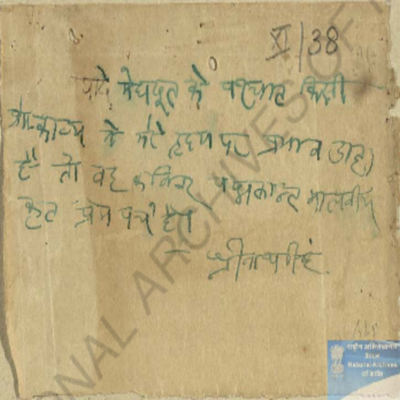 XI/38
यदि मेघदूत के पश्चात किसी
प्रेम-काव्य ने मेरे हृदय पर प्रभाव डाला
है तो वह कविवर पद्मकान्त मालवीय
कृत प्रेम पत्र है।
- श्रीनाथसिंह
NATIONAL ARCHIVES OF
राष्ट्रीय अभिलेखागार
National Archives
of India